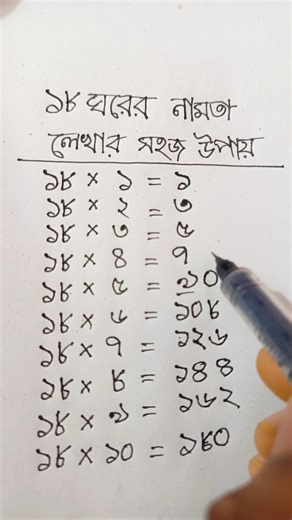 ১৮ ঘরের নামতা
লেখার সহজ উপায়
১৮ × ১ = ১
১৮ × ২ = ৩
১৮ × ৩ = ৫
১৮ × ৪ = ৭
১৮ × ৫ = ৯০
১৮ × ৬ = ১০৮
১৮ × ৭ = ১২৬
১৮ × ৮ = ১৪৪
১৮ × ৯ = ১৬২
১৮ × ১০ = ১৮০